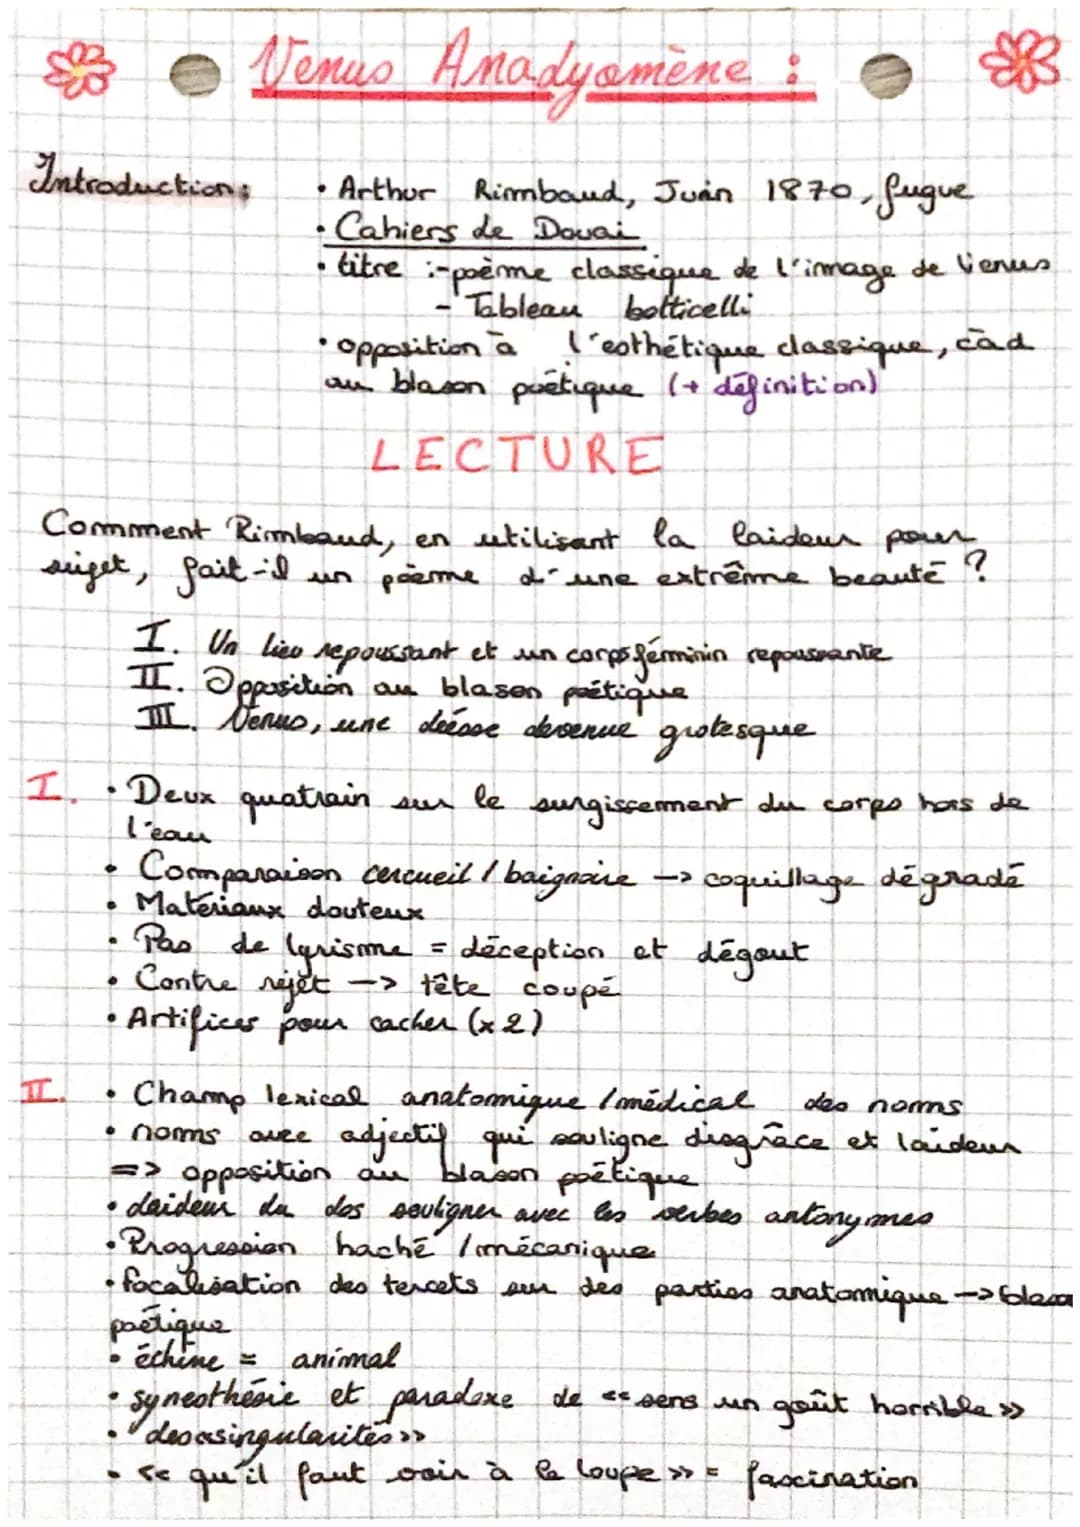 Venus Anadyomène :
Introduction : • Arthur Rimbaud, Juin 1870, fugue
• Cahiers de Douai
• titre :- poème classique de l'image de Venus
- Tableau botticelli
• opposition à l'esthétique classique, càd
au blason poétique (+ définition)
LECTURE
Comment Rimbaud, en utilisant la laideur pour
sujet, fait-il un poème d'une extrême beauté ?
I. Un lieu repoussant et un corps féminin repoussante
II. Opposition au blason poétique
III. Venus, une déesse devenue grotesque
I. • Deux quatrain sur le surgissement du corps hors de
l'eau
• Comparaison cercueil / baignoire -> coquillage dégradé
• Matériaux douteux
• Pas de lyrisme = déception et dégout
• Contre rejet -> tête coupé
• Artifices pour cacher (x2)
II. • Champ lexical anatomique / médical des noms
• noms avec adjectif qui souligne disgrâce et laideur
=> opposition au blason poétique
• laideur du dos souligner avec les verbes antonymes
• Progression haché / mécanique
• focalisation des tercets sur des parties anatomique -> blason
poétique
• échine = animal
• synesthésie et paradoxe de << sens un goût horrible >>
• " des singularités >>
• << qu'il faut voir à la loupe >> = fascination